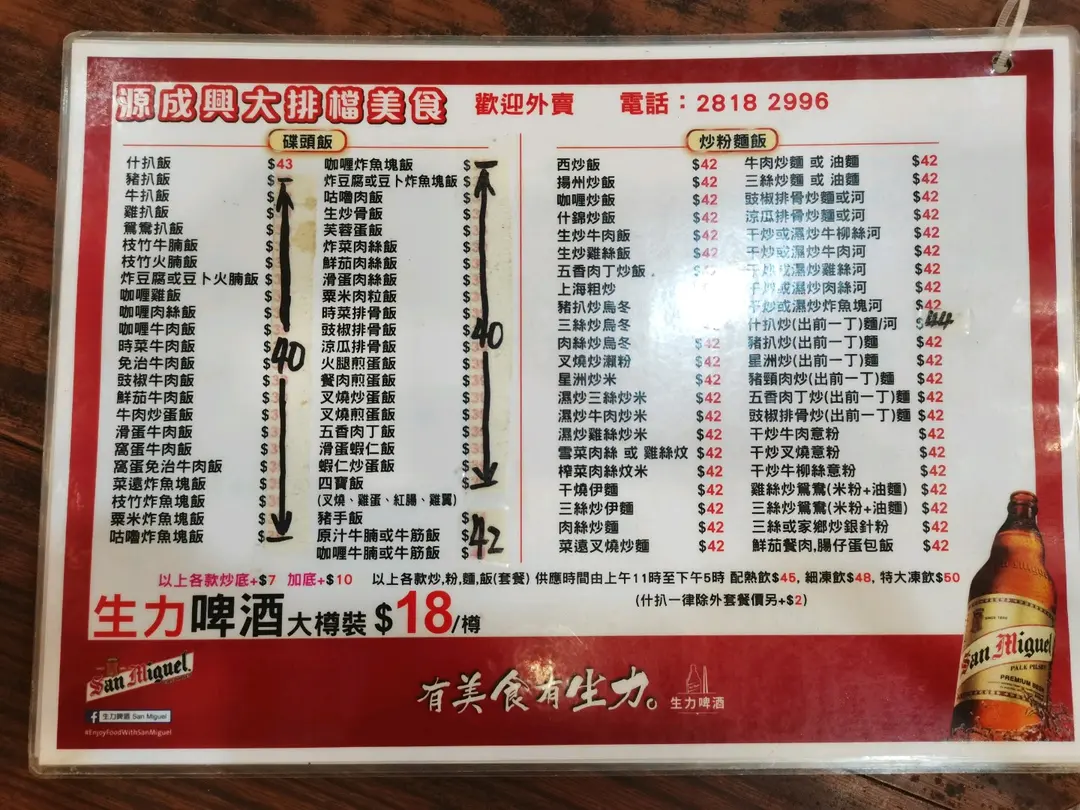 源成興大排檔美食 歡迎外賣 電話：2818 2996
碟頭飯
什扒飯 $43
豬扒飯 $
牛扒飯 $
雞扒飯 $
鴛鴦扒飯 $
枝竹牛腩飯 $
枝竹火腩飯 $
炸豆腐或豆卜火腩飯 $
咖喱雞飯 $
咖喱肉絲飯 $
咖喱牛肉飯 $
時菜牛肉飯 $
免治牛肉飯 $
豉椒牛肉飯 $
鮮茄牛肉飯 $
牛肉炒蛋飯 $
滑蛋牛肉飯 $
窩蛋牛肉飯 $
窩蛋免治牛肉飯 $
菜遠炸魚塊飯 $
枝竹炸魚塊飯 $
粟米炸魚塊飯 $
咕嚕炸魚塊飯 $
40
咖喱炸魚塊飯 $
炸豆腐或豆卜炸魚塊飯 $
咕嚕肉飯 $
生炒骨飯 $
芙蓉蛋飯 $
炸菜肉絲飯 $
鮮茄肉絲飯 $
滑蛋肉絲飯 $
粟米肉粒飯 $
時菜排骨飯 $
豉椒排骨飯 $
涼瓜排骨飯 $
火腿煎蛋飯 $
餐肉煎蛋飯 $
叉燒炒蛋飯 $
叉燒煎蛋飯 $
五香肉丁飯 $
滑蛋蝦仁飯 $
蝦仁炒蛋飯 $
四寶飯 $
(叉燒、雞蛋、紅腸、雞翼)
40
豬手飯 $
原汁牛腩或牛筋飯 $
咖喱牛腩或牛筋飯 $
42
炒粉麵飯
西炒飯 $42
揚州炒飯 $42
咖喱炒飯 $42
什錦炒飯 $42
生炒牛肉飯 $42
生炒雞絲飯 $42
五香肉丁炒飯
上海粗炒
豬扒炒烏冬
三絲炒烏冬
肉絲炒烏冬 $42
叉燒炒瀨粉 $42
星洲炒米 $42
濕炒三絲炒米 $42
濕炒牛肉炒米 $42
濕炒雞絲炒米 $42
雪菜肉絲 或 雞絲炆 $42
榨菜肉絲炆米 $42
干燒伊麵 $42
三絲炒伊麵 $42
肉絲炒麵 $42
菜遠叉燒炒麵 $42
牛肉炒麵 或 油麵 $42
三絲炒麵 或 油麵 $42
豉椒排骨炒麵或河 $42
涼瓜排骨炒麵或河 $42
干炒或濕炒牛柳絲河 $42
干炒或濕炒牛肉河 $42
干炒或濕炒雞絲河 $42
干炒或濕炒肉絲河 $42
干炒或濕炒炸魚塊河 $42
什扒炒(出前一丁)麵/河 $44
豬扒炒(出前一丁)麵 $42
星洲炒(出前一丁)麵 $42
豬頸肉炒(出前一丁)麵 $42
五香肉丁炒(出前一丁)麵 $42
豉椒排骨炒(出前一丁)麵 $42
干炒牛肉意粉 $42
干炒叉燒意粉 $42
干炒牛柳絲意粉 $42
雞絲炒鴛鴦(米粉+油麵) $42
三絲炒鴛鴦(米粉+油麵) $42
三絲或家鄉炒銀針粉 $42
鮮茄餐肉,腸仔蛋包飯 $42
以上各款炒底+$7 加底+$10 以上各款炒,粉,麵,飯(套餐) 供應時間由上午11時至下午5時 配熱飲$45, 細凍飲$48, 特大凍飲$50
(什扒一律除外套餐價另+$2)
生力啤酒大樽裝 $18/樽
San Miguel
生力啤酒 San Miguel
#EnjoyFoodWithSanMiguel
有美食有生力。
生力啤酒
San Miguel
PALE PILSEN
PREMIUM BEER